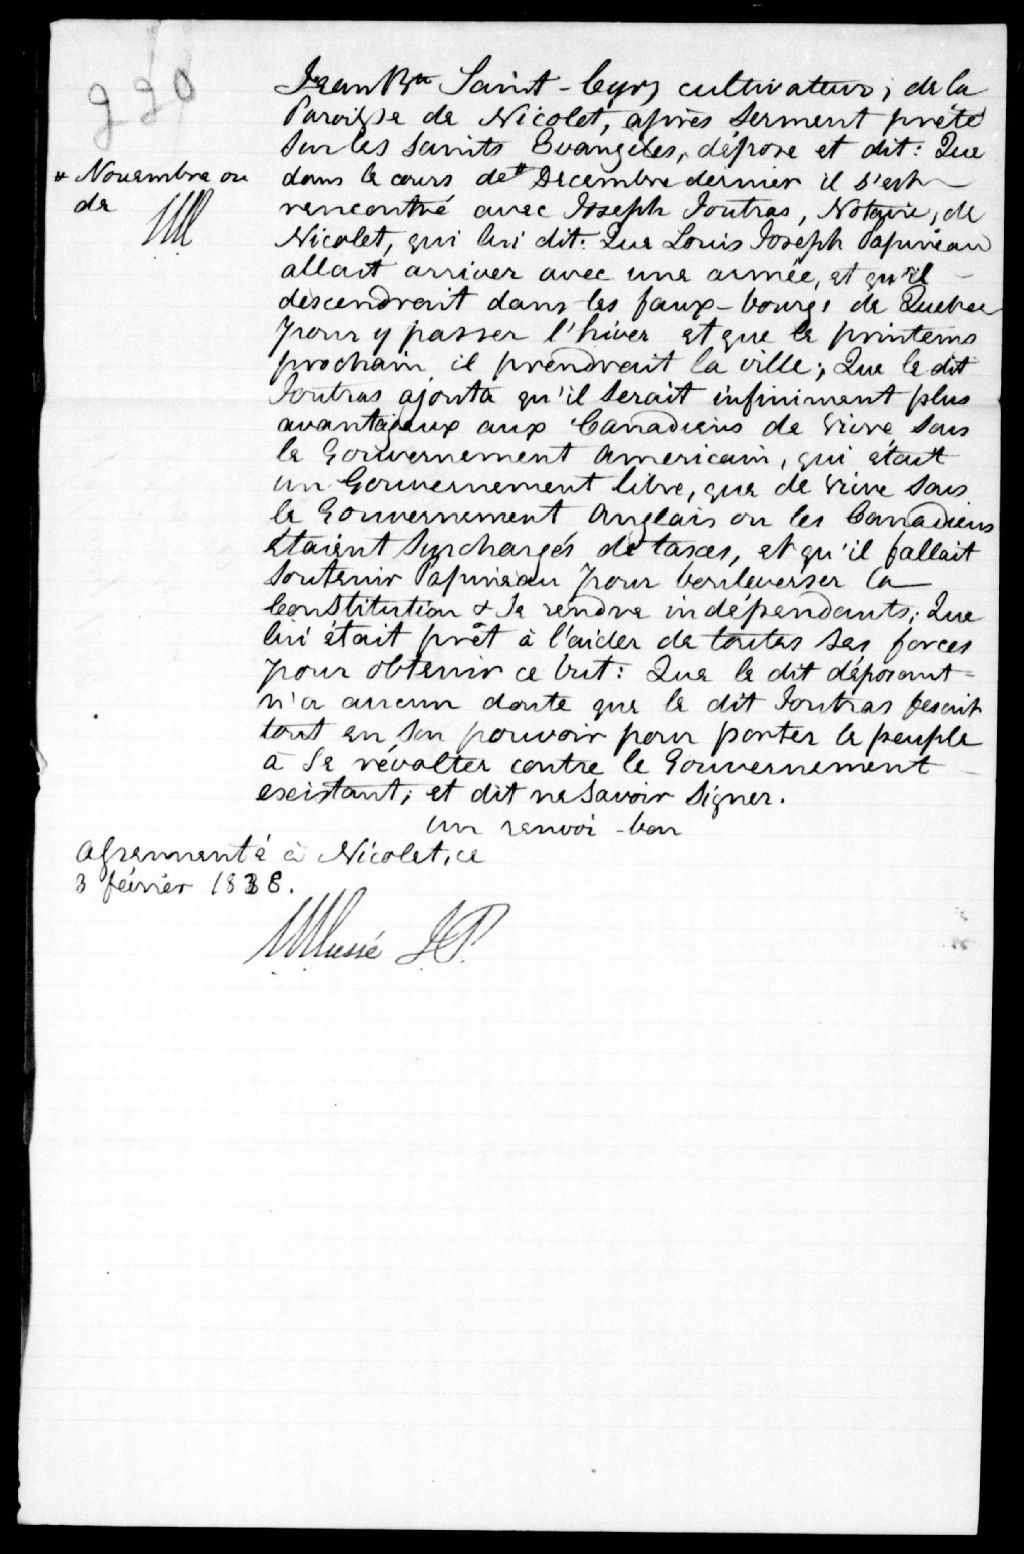 220
Jean Bte Saint-Cyr, cultivateur, de la
Paroisse de Nicolet, après serment prêté
sur les saints Evangiles, dépose et dit: Que
* Novembre ou
de
dans le cours de * Decembre dernier il s'est
rencontré avec Joseph Joutras, Notaire, de
Nicolet, qui lui dit: Que Louis Joseph Papineau
allait arriver avec une armée, et qu'il
descendrait dans les faux-bourgs de Quebec
pour y passer l'hiver et que le printems
prochain il prendrait la ville; Que le dit
Joutras ajouta qu'il serait infiniment plus
avantageux aux Canadiens de vivre sous
le Gouvernement Americain, qui était
un Gouvernement libre, que de vivre sous
le Gouvernement Anglais ou les Canadiens
étaient surchargés de taxes, et qu'il fallait
soutenir Papineau pour bouleverser la
Constitution & se rendre indépendants; Que
lui était prêt à l'aider de toutes ses forces
pour obtenir ce but: Que le dit déposant
n'a aucun doute que le dit Joutras fesait
tout en son pouvoir pour porter le peuple
à se révolter contre le Gouvernement
existant; et dit ne savoir signer.
un renvoi bon
Assermenté à Nicolet, ce
3 février 1838.
JP.